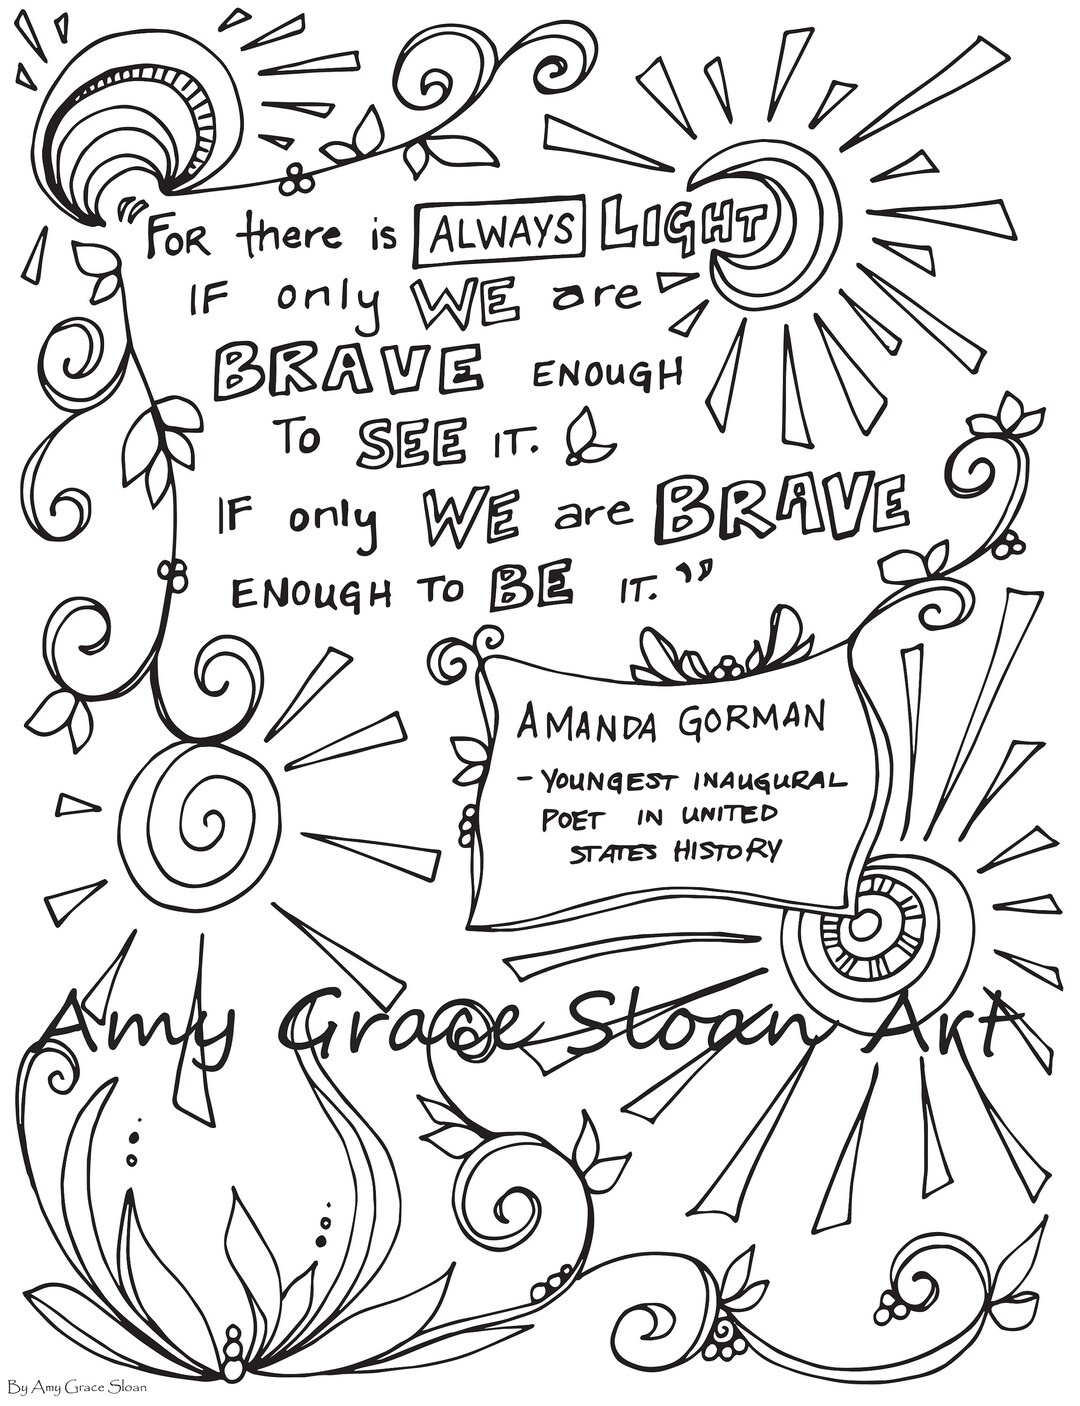 "FOR there is ALWAYS LIGHT
IF only WE are
BRAVE ENOUGH
TO SEE IT.
IF only WE are BRAVE
ENOUGH TO BE IT."
AMANDA GORMAN
- YOUNGEST INAUGURAL
POET IN UNITED
STATES HISTORY
Amy Grace Sloan Art
By Amy Grace Sloan